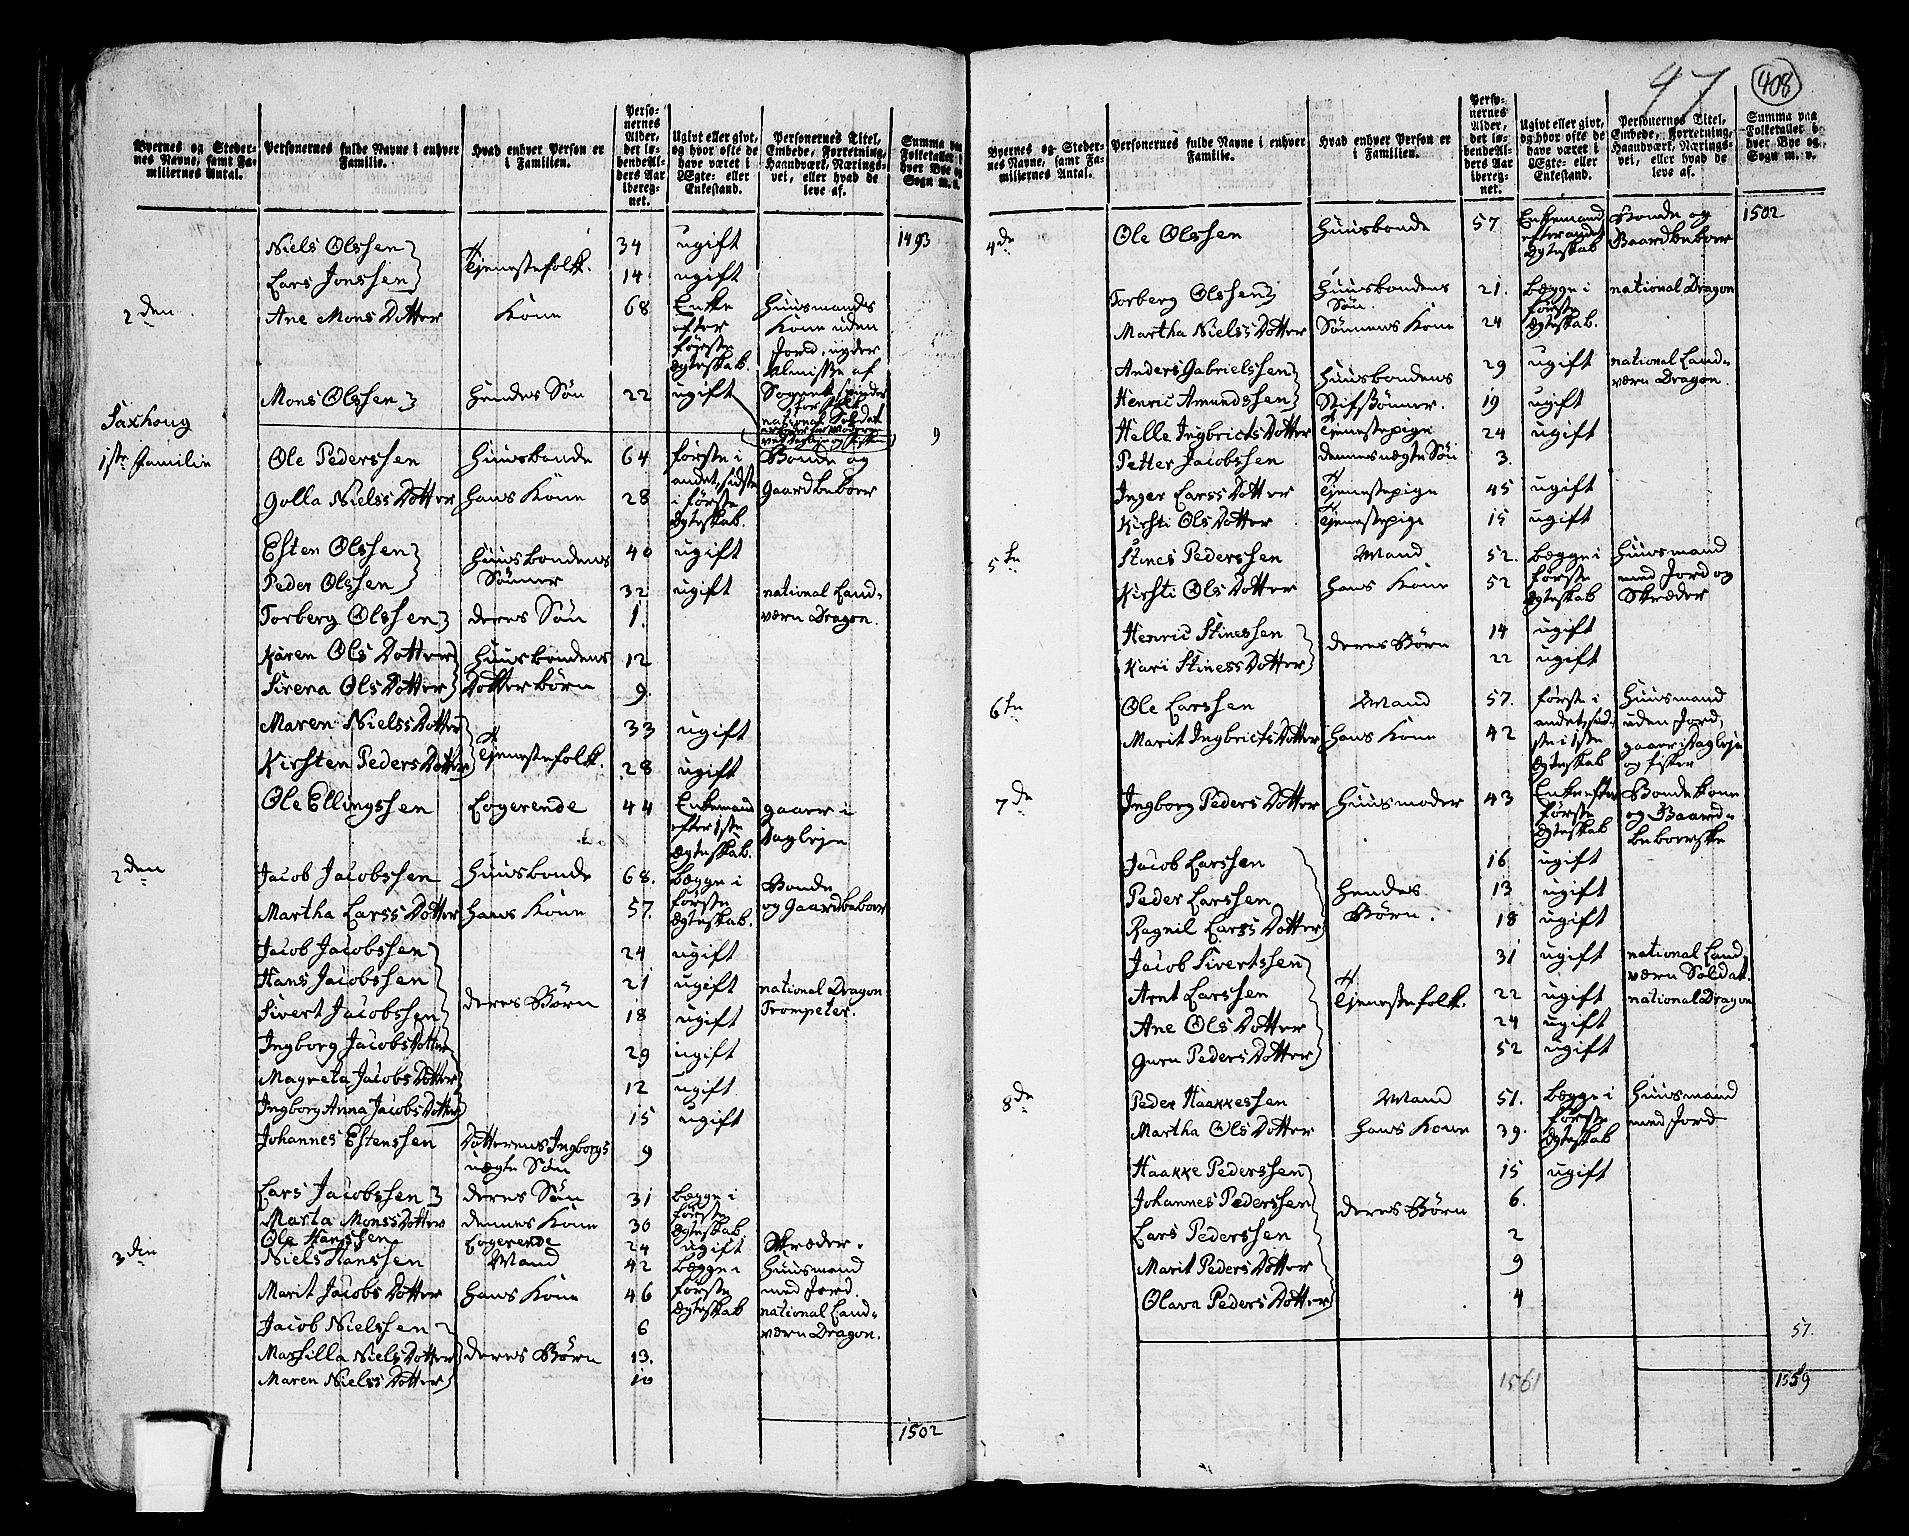 Byernes og Steder-nes Navne, samt Fa-miliernes Antal. Personernes fulde Navne i enhver Familie. Hvad enhver Person er i Familien. Perso-nernes Alder, det lø-bende Al-ders Aar ibereg-net. Ugivt eller givt, og hvor ofte de have været i Ægte- eller Enkestand. Personernes Titel, Embede, Forretning, Haandværk, Nærings-vei, eller hvad de leve af. Summa paa Folketallet i hver Bye og Sogn m. v.
Niels Olssen } Tjenestefolk. 34 ugift 1493
Lars Jonssen } 14 ugift
2den Ane Mons Dotter Kone 68 Enke efter første Ægteskab. Huusmands Kone uden Jord, nyder Almisse af
Mons Olssen } hendes Søn 22 ugift Sognet
9
Saxhoug
1ste Familie Ole Pederssen Huusbonde 64 første i andet, sidste i første Ægteskab. Bonde og Gaardbeboer
Golla Niels Dotter hans Kone 28
Esten Olssen } Huusbondens Sønner 40 ugift
Peder Olssen } 32 ugift national Land=værn Dragon.
Torberg Olssen } deres Søn 1.
Karen Ols Dotter } Huusbondens Dotterbørn 12
Sirena Ols Dotter } 9.
Maren Niels Dotter } Tjenestefolk. 33 ugift
Kirsten Peders Dotter } 28 ugift
Ole Ellingssen Logerende 44 Enkemand efter 1ste Ægteskab. gaaer i Dagleje
2den Jacob Jacobssen Huusbonde 68. begge i første Ægteskab. Bonde og Gaardbeboer
Martha Larss Dotter hans Kone 57.
Jacob Jacobssen } deres Børn 24 ugift
Hans Jacobssen 21 ugift national Dragon Trompeter.
Sivert Jacobssen 18 ugift
Ingborg Jacobs Dotter 29 ugift
Magreta Jacobs Dotter 12 ugift
Ingborg Anna Jacobs Dotter 15 ugift
Johannes Estenssen Dotterens Ingborgs uægte Søn 9
Lars Jacobssen } deres Søn 31 begge i første Ægteskab.
Marta Monss Dotter dennes Kone 30
Ole Hanssen Logerende 24 ugift Skræder.
3die Niels Hanssen Mand 42 begge i første Ægteskab Huusmand med Jord. national Land=værn Dragon.
Marit Jacobs Dotter hans Kone 46
Jacob Nielssen } deres Børn 6
Marsilla Niels Dotter 13.
Maren Niels Dotter } 10
1502
47 408
Byernes og Steder-nes Navne, samt Fa-miliernes Antal. Personernes fulde Navne i enhver Familie. Hvad enhver Person er i Familien. Perso-nernes Alder, det lø-bende Al-ders Aar ibereg-net. Ugivt eller givt, og hvor ofte de have været i Ægte- eller Enkestand. Personernes Titel, Embede, Forretning, Haandværk, Nærings-vei, eller hvad de leve af. Summa paa Folketallet i hver Bye og Sogn m. v.
4de Ole Olssen Huusbonde 57 Enkemand efter andet Ægteskab Bonde og Gaardbeboer 1502
Torberg Olssen } Huusbondens Søn 21. begge i første Ægteskab. national Dragon
Martha Niels Dotter Sønnens Kone 24
Anders Gabrielssen } Huusbondens Stifsønner. 29 ugift national Land=værn Dragon.
Henric Amundssen } 19 ugift
Helle Ingbricts Dotter Tjenestepige 24 ugift
Petter Jacobssen dennes uægte Søn 3.
Inger Larss Dotter Tjenestepige 45 ugift
Kirsti Ols Dotter Tjenestepige 15 ugift
5te Stines Pederssen Mand 52. begge i første Ægteskab Huusmand med Jord og Skræder
Kirsti Ols Dotter hans Kone 52
Henric Stinessen } deres Børn 14 ugift
Kari Stiness Dotter } 22 ugift
6te Ole Larssen Mand 57. første i andet, sid=ste i 1ste Ægteskab Huusmand uden Jord, gaaer i Dagleje og fisker
Marit Ingbricts Dotter hans Kone 42
7de Ingborg Peders Dotter Huusmoder 43 Enke efter første Ægteskab Bondekone og Gaard=beboerske
Jacob Larssen } Hendes Børn. 16 ugift
Peder Larssen 13 ugift
Ragnil Larss Dotter } 18 ugift
Jacob Sivertssen } Tjenestefolk. 31 ugift national Land værn Soldat.
Arnt Larssen 22 ugift national Dragon
Ane Ols Dotter 24 ugift
Guru Peders Dotter } 52 ugift
8de Peder Haakkessen Mand 51. begge i første Ægteskab Huusmand med Jord
Martha Ols Dotter hans Kone 39.
Haakke Pederssen } deres Børn 15 ugift
Johannes Pederssen 6.
Lars Pederssen 2
Marit Peders Dotter 9
Olava Peders Dotter } 4
57.
1561 1559